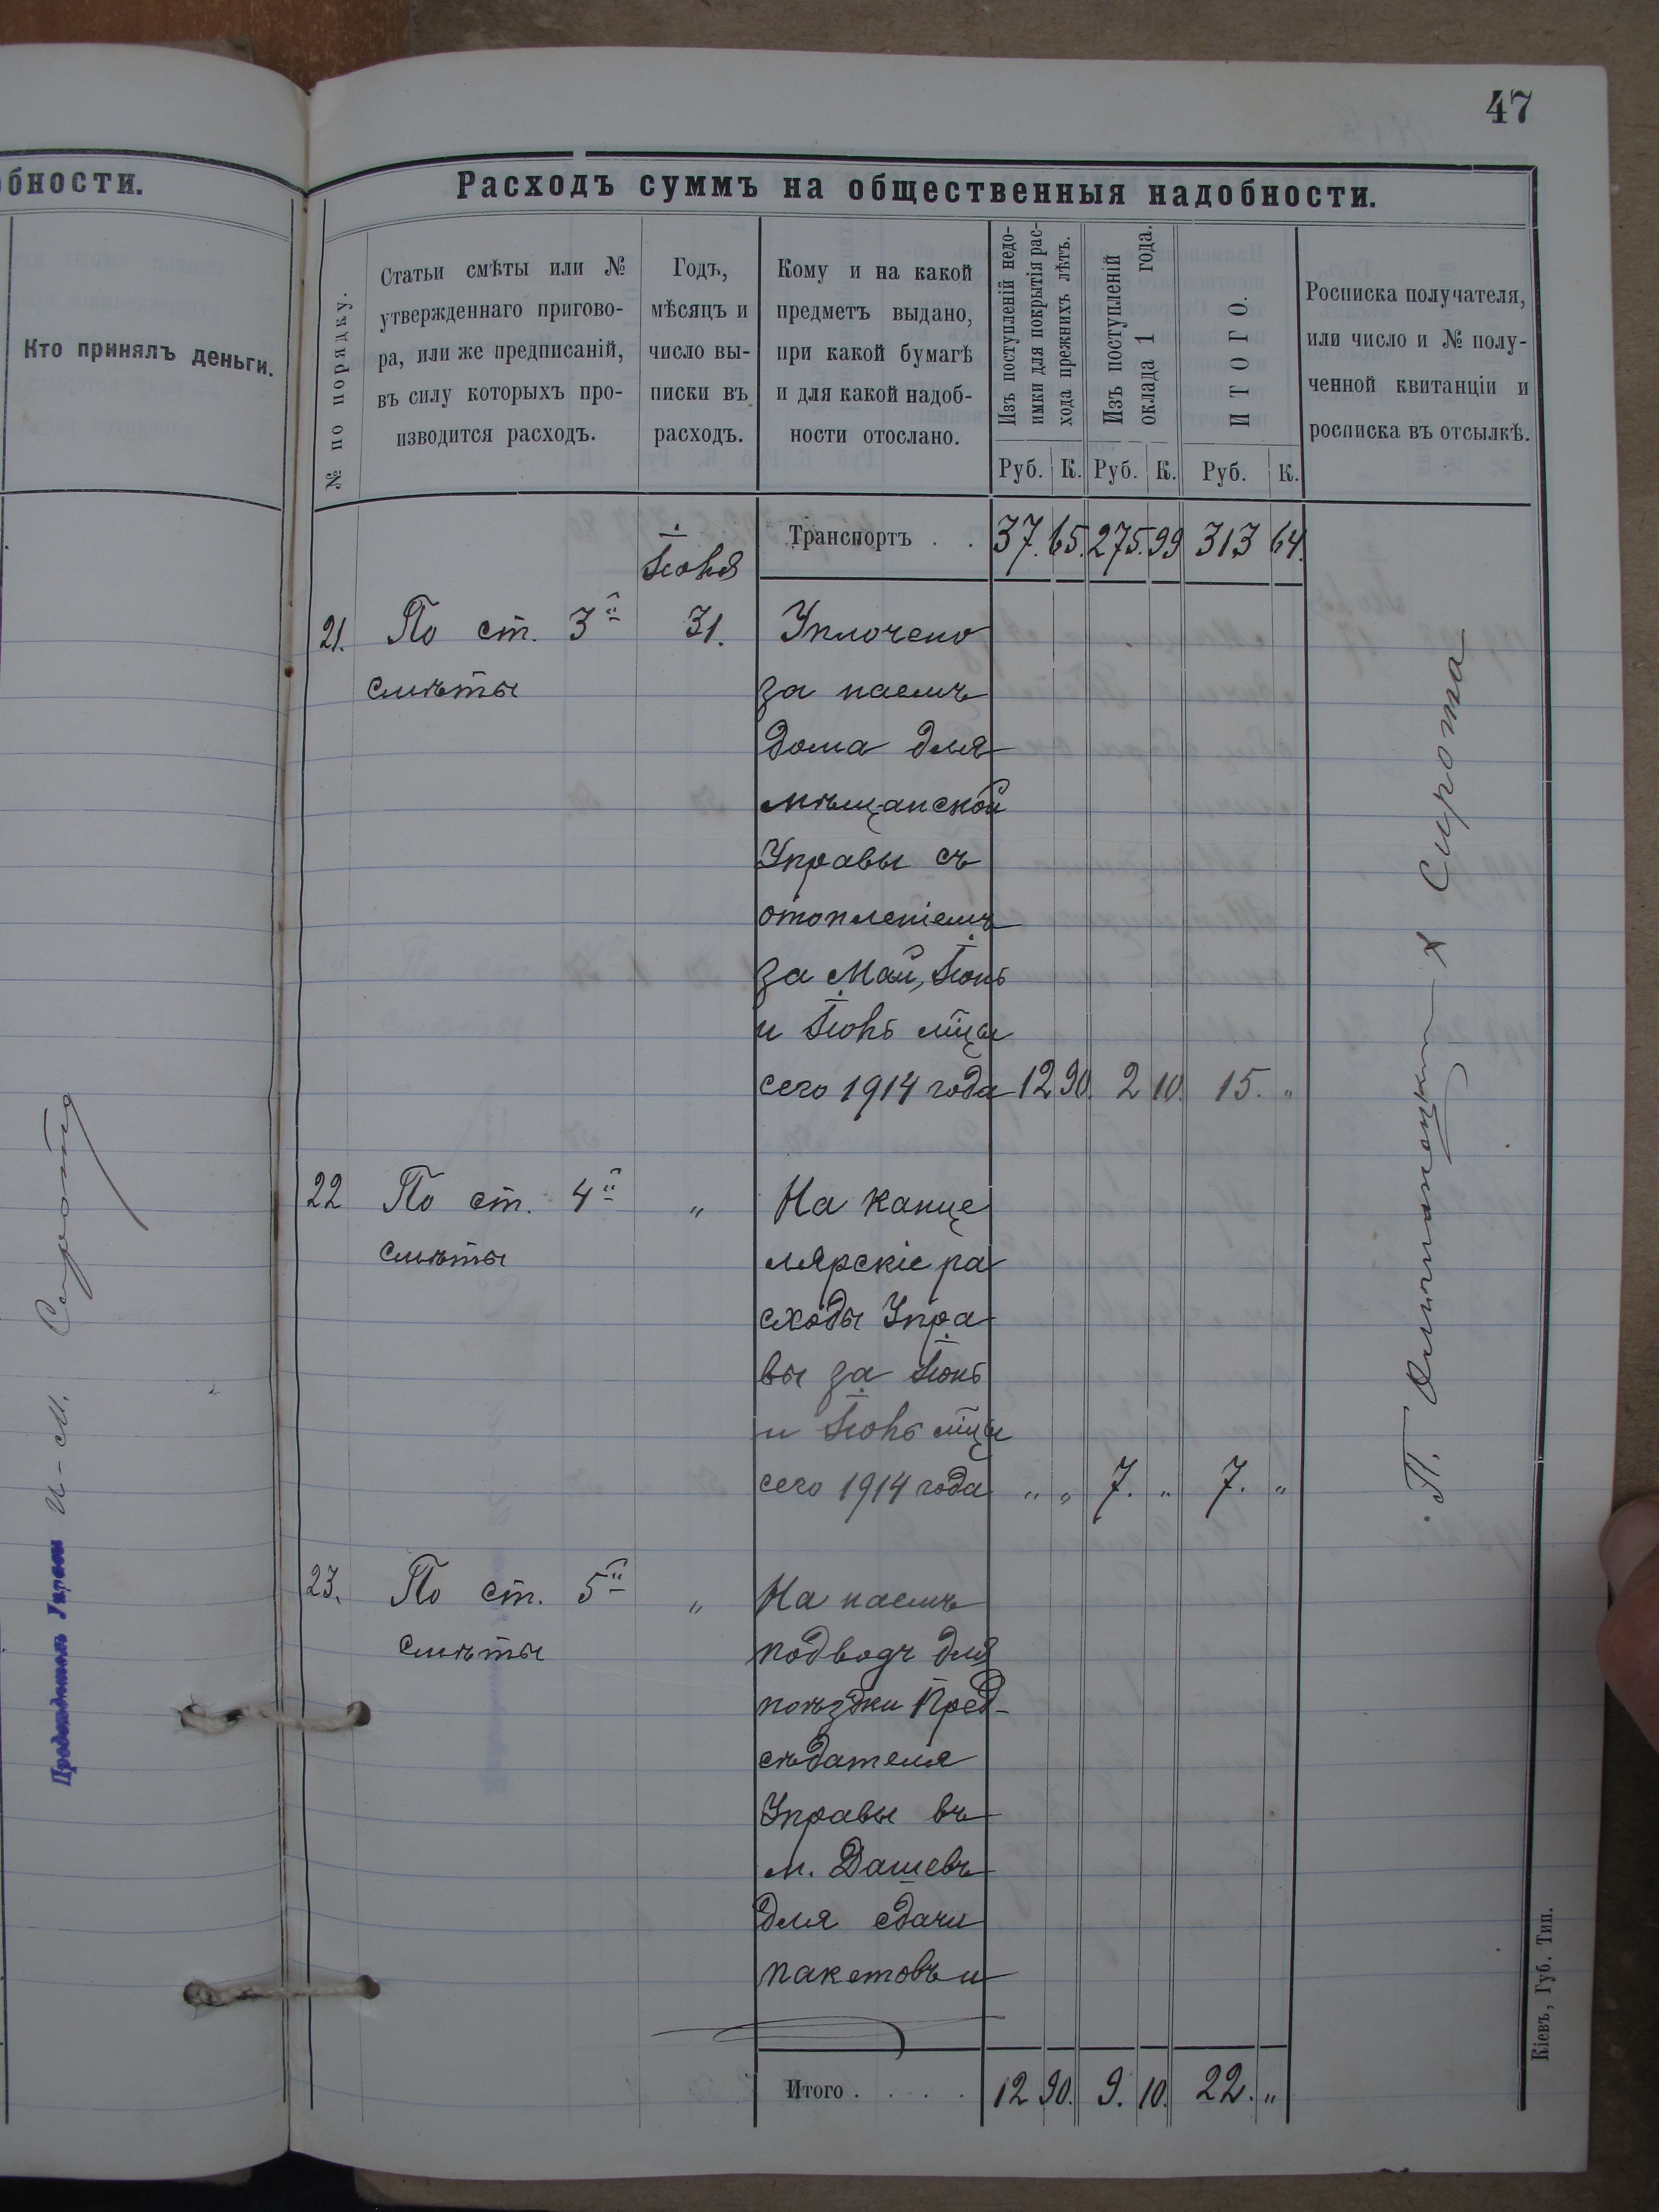 47
обности.
Кто принялъ деньги.
Сирота
И-М.
Расходъ суммъ на общественныя надобности.
№ по порядку.
Статьи смѣты или №
утвержденнаго пригово-
ра, или же предписаній,
въ силу которыхъ про-
изводится расходъ.
Годъ,
мѣсяцъ и
число вы-
писки въ
расходъ.
Кому и на какой
предметъ выдано,
при какой бумагѣ
и для какой надоб-
ности отослано.
Изъ поступленій недо-
имки для покрытія рас-
хода прежнихъ лѣтъ.
Изъ поступленій
оклада 1 года.
ИТОГО.
Росписка получателя,
или число и № полу-
ченной квитанціи и
росписка въ отсылкѣ.
Руб. К. Руб. К. Руб. К.
Транспортъ . . 37. 65. 275. 99 313 64.
Іюля
21. По ст. 3й 31. Уплочено
смѣты за наемъ
дома для
мѣщанской
Управы съ
отопленіемъ
за Май, Іюнь
и Іюль мцы
сего 1914 года 12 90. 2 10. 15. "
22 По ст. 4й " На канце
смѣты лярскіе ра
сходы Упра
вы за Іюнь
и Іюль мцы
сего 1914 года " " 7. " 7. "
23. По ст. 5й " На наемъ
смѣты подводъ для
поѣздки Пред-
сѣдателя
Управы въ
м. Дашевъ
для сдачи
пакетовъ и
Итого . . . . 12 90. 9. 10. 22. "
П.
Сирота
Кіевъ, Губ. Тип.